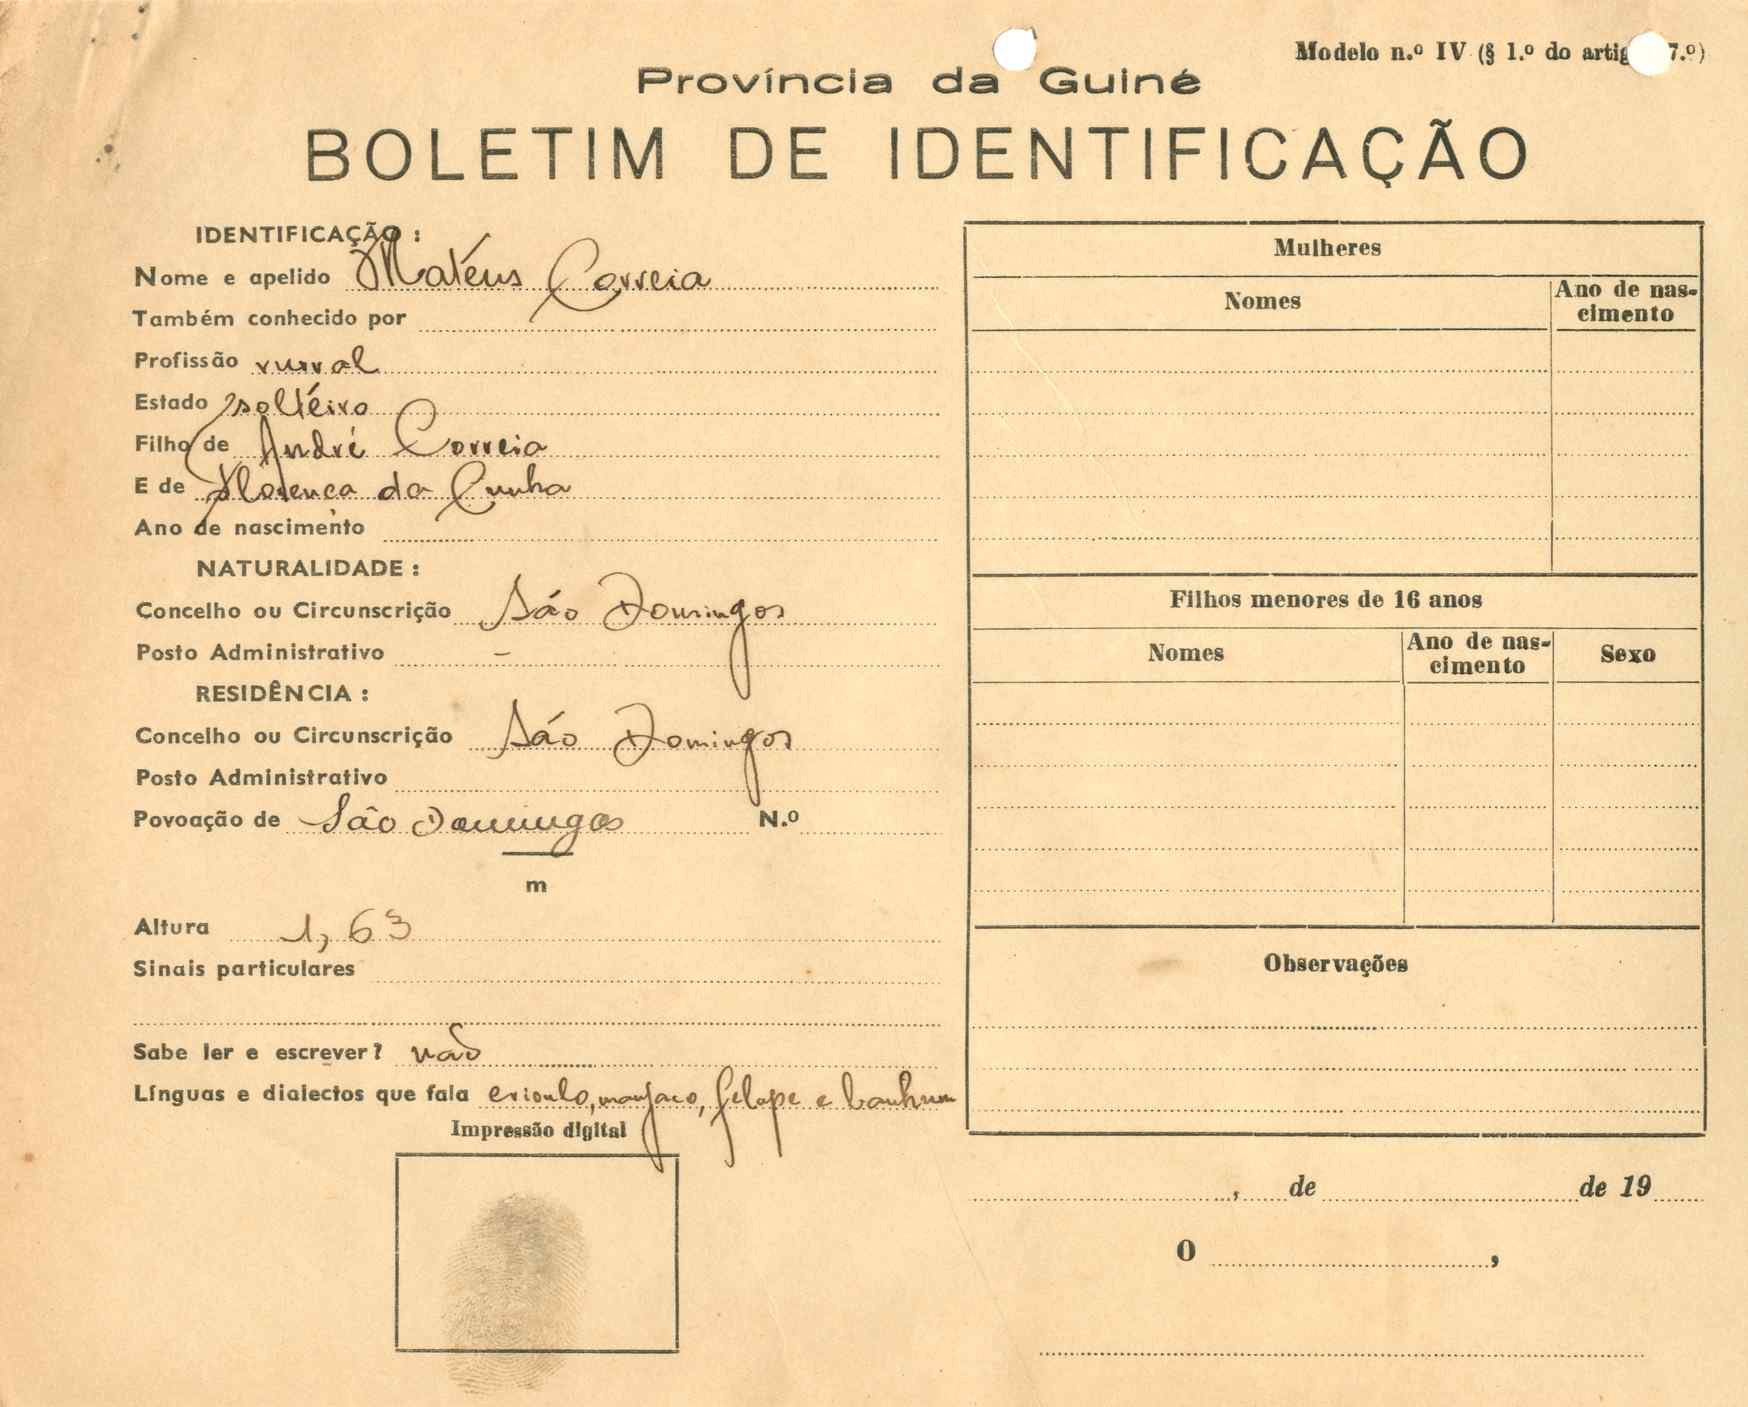 Modelo n.º IV (§ 1.º do artig 7.º)
Província da Guiné
BOLETIM DE IDENTIFICAÇÃO
IDENTIFICAÇÃO:
Nome e apelido Matéus Correia
Também conhecido por
Profissão rural
Estado soltéiro
Filho de André Correia
E de da Cunha
Ano de nascimento
NATURALIDADE:
Concelho ou Circunscrição São Domingos
Posto Administrativo -
RESIDÊNCIA:
Concelho ou Circunscrição São Domingos
Posto Administrativo
Povoação de São Domingos N.º
m
Altura 1,63
Sinais particulares
Sabe ler e escrever? não
Línguas e dialectos que fala crioulo, manjaco, felupe e banhum
Impressão digital
Mulheres
Nomes Ano de nas-
cimento
Filhos menores de 16 anos
Nomes Ano de nas- Sexo
cimento
Observações
, de de 19
O ,